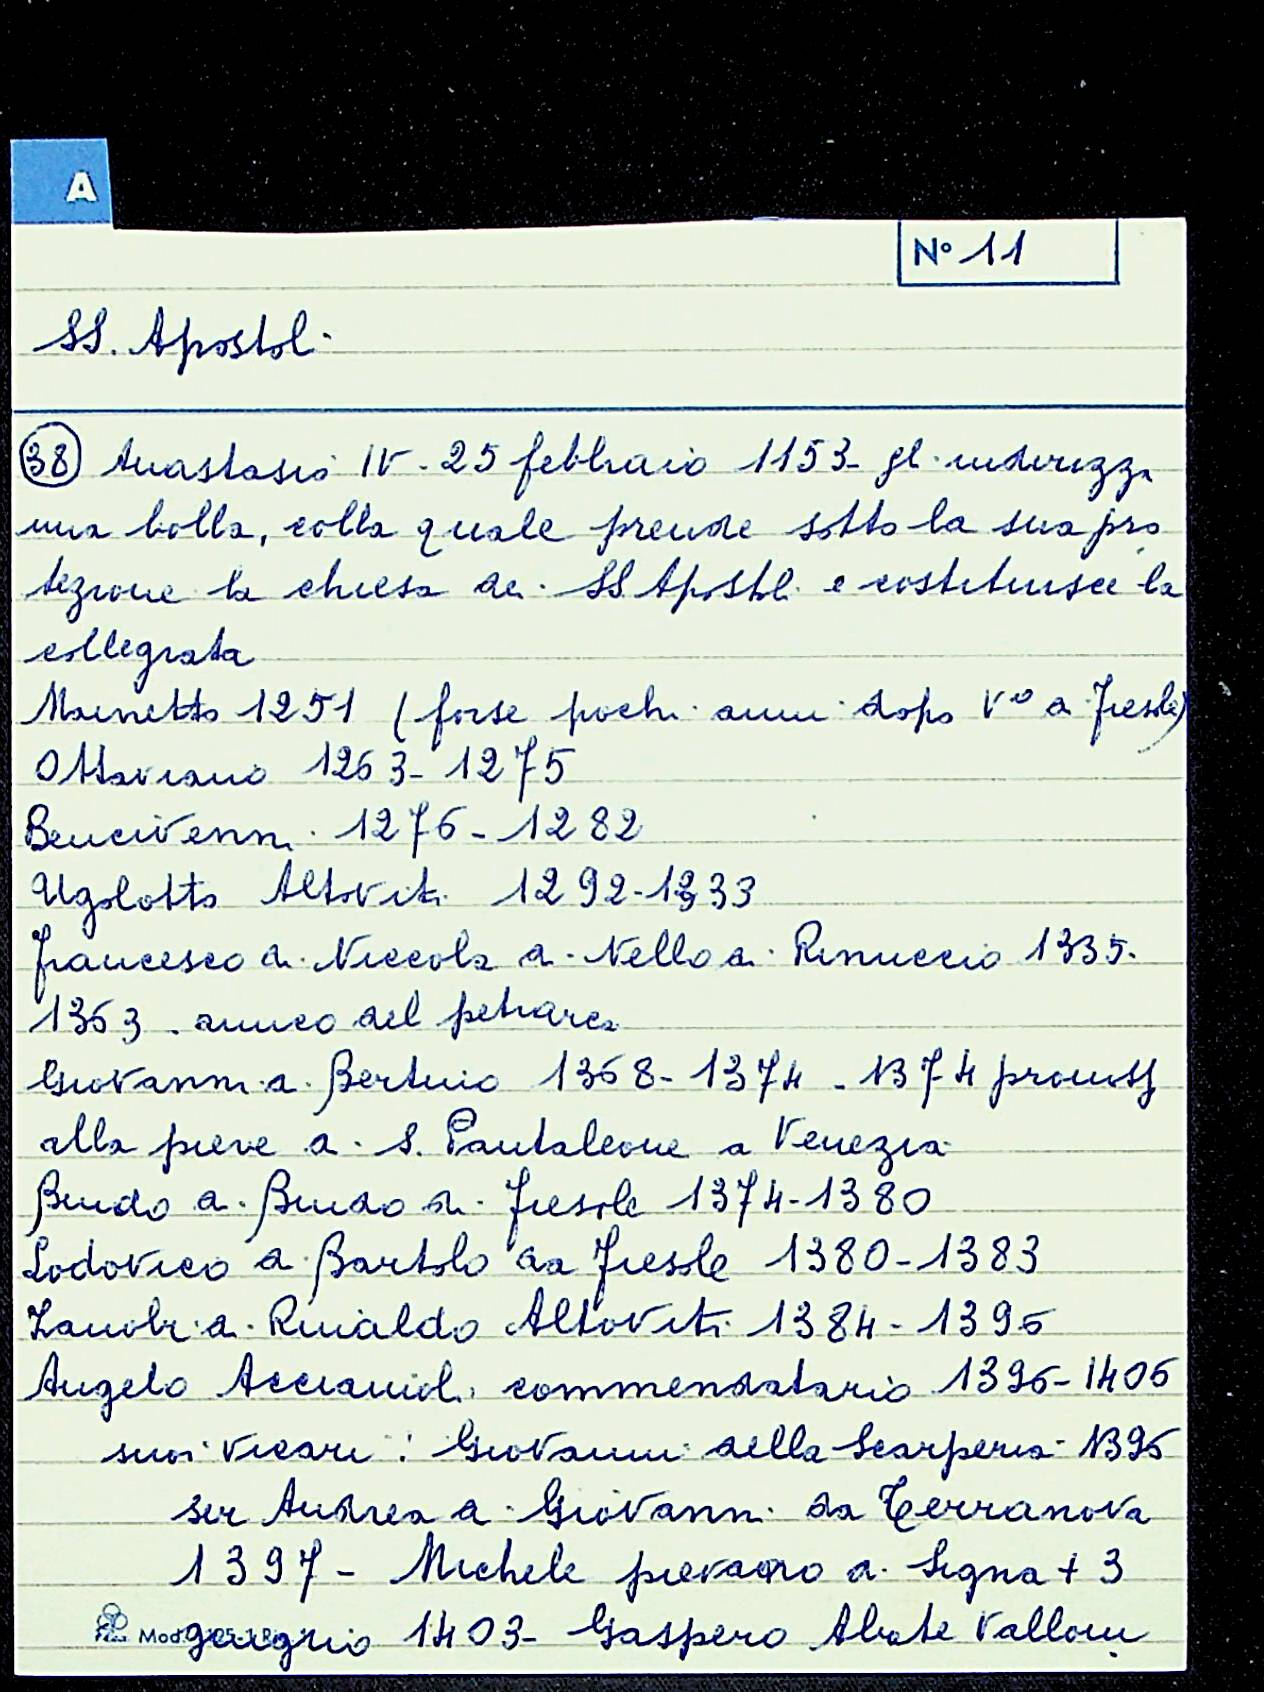 A
N° 11
SS. Apostoli
38 Anastasio IV - 25 febbraio 1153 - gli indirizza
una bolla, colla quale prende sotto la sua pro
tezione la chiesa dei SS Apostoli e costituisce la
collegiata
Mainetto 1251 (forse pochi anni dopo V° di Fiesole)
Ottaviano 1263 - 1275
Bencivenni 1276 - 1282
Ugolotto Altoviti 1292 - 1333
Francesco di Niccola di Nello di Rinuccio 1335 -
1363 - amico del petrarca
Giovanni di Bertuio 1368 - 1374 - 1374 promoss
alla pieve di S. Pantaleone a Venezia
Bindo di Bindo di Fiesole 1374 - 1380
Lodovico di Bartolo da Fiesole 1380 - 1383
Zanobi di Rinaldo Altoviti 1384 - 1396
Angelo Acciaiuoli commendatario 1396 - 1406
suoi vicari: Giovanni della Scarperia 1396
ser Andrea di Giovanni da Terranova
1397 - Michele pievano di Signa + 3
giugno 1403 - Gaspero Abate Vallom